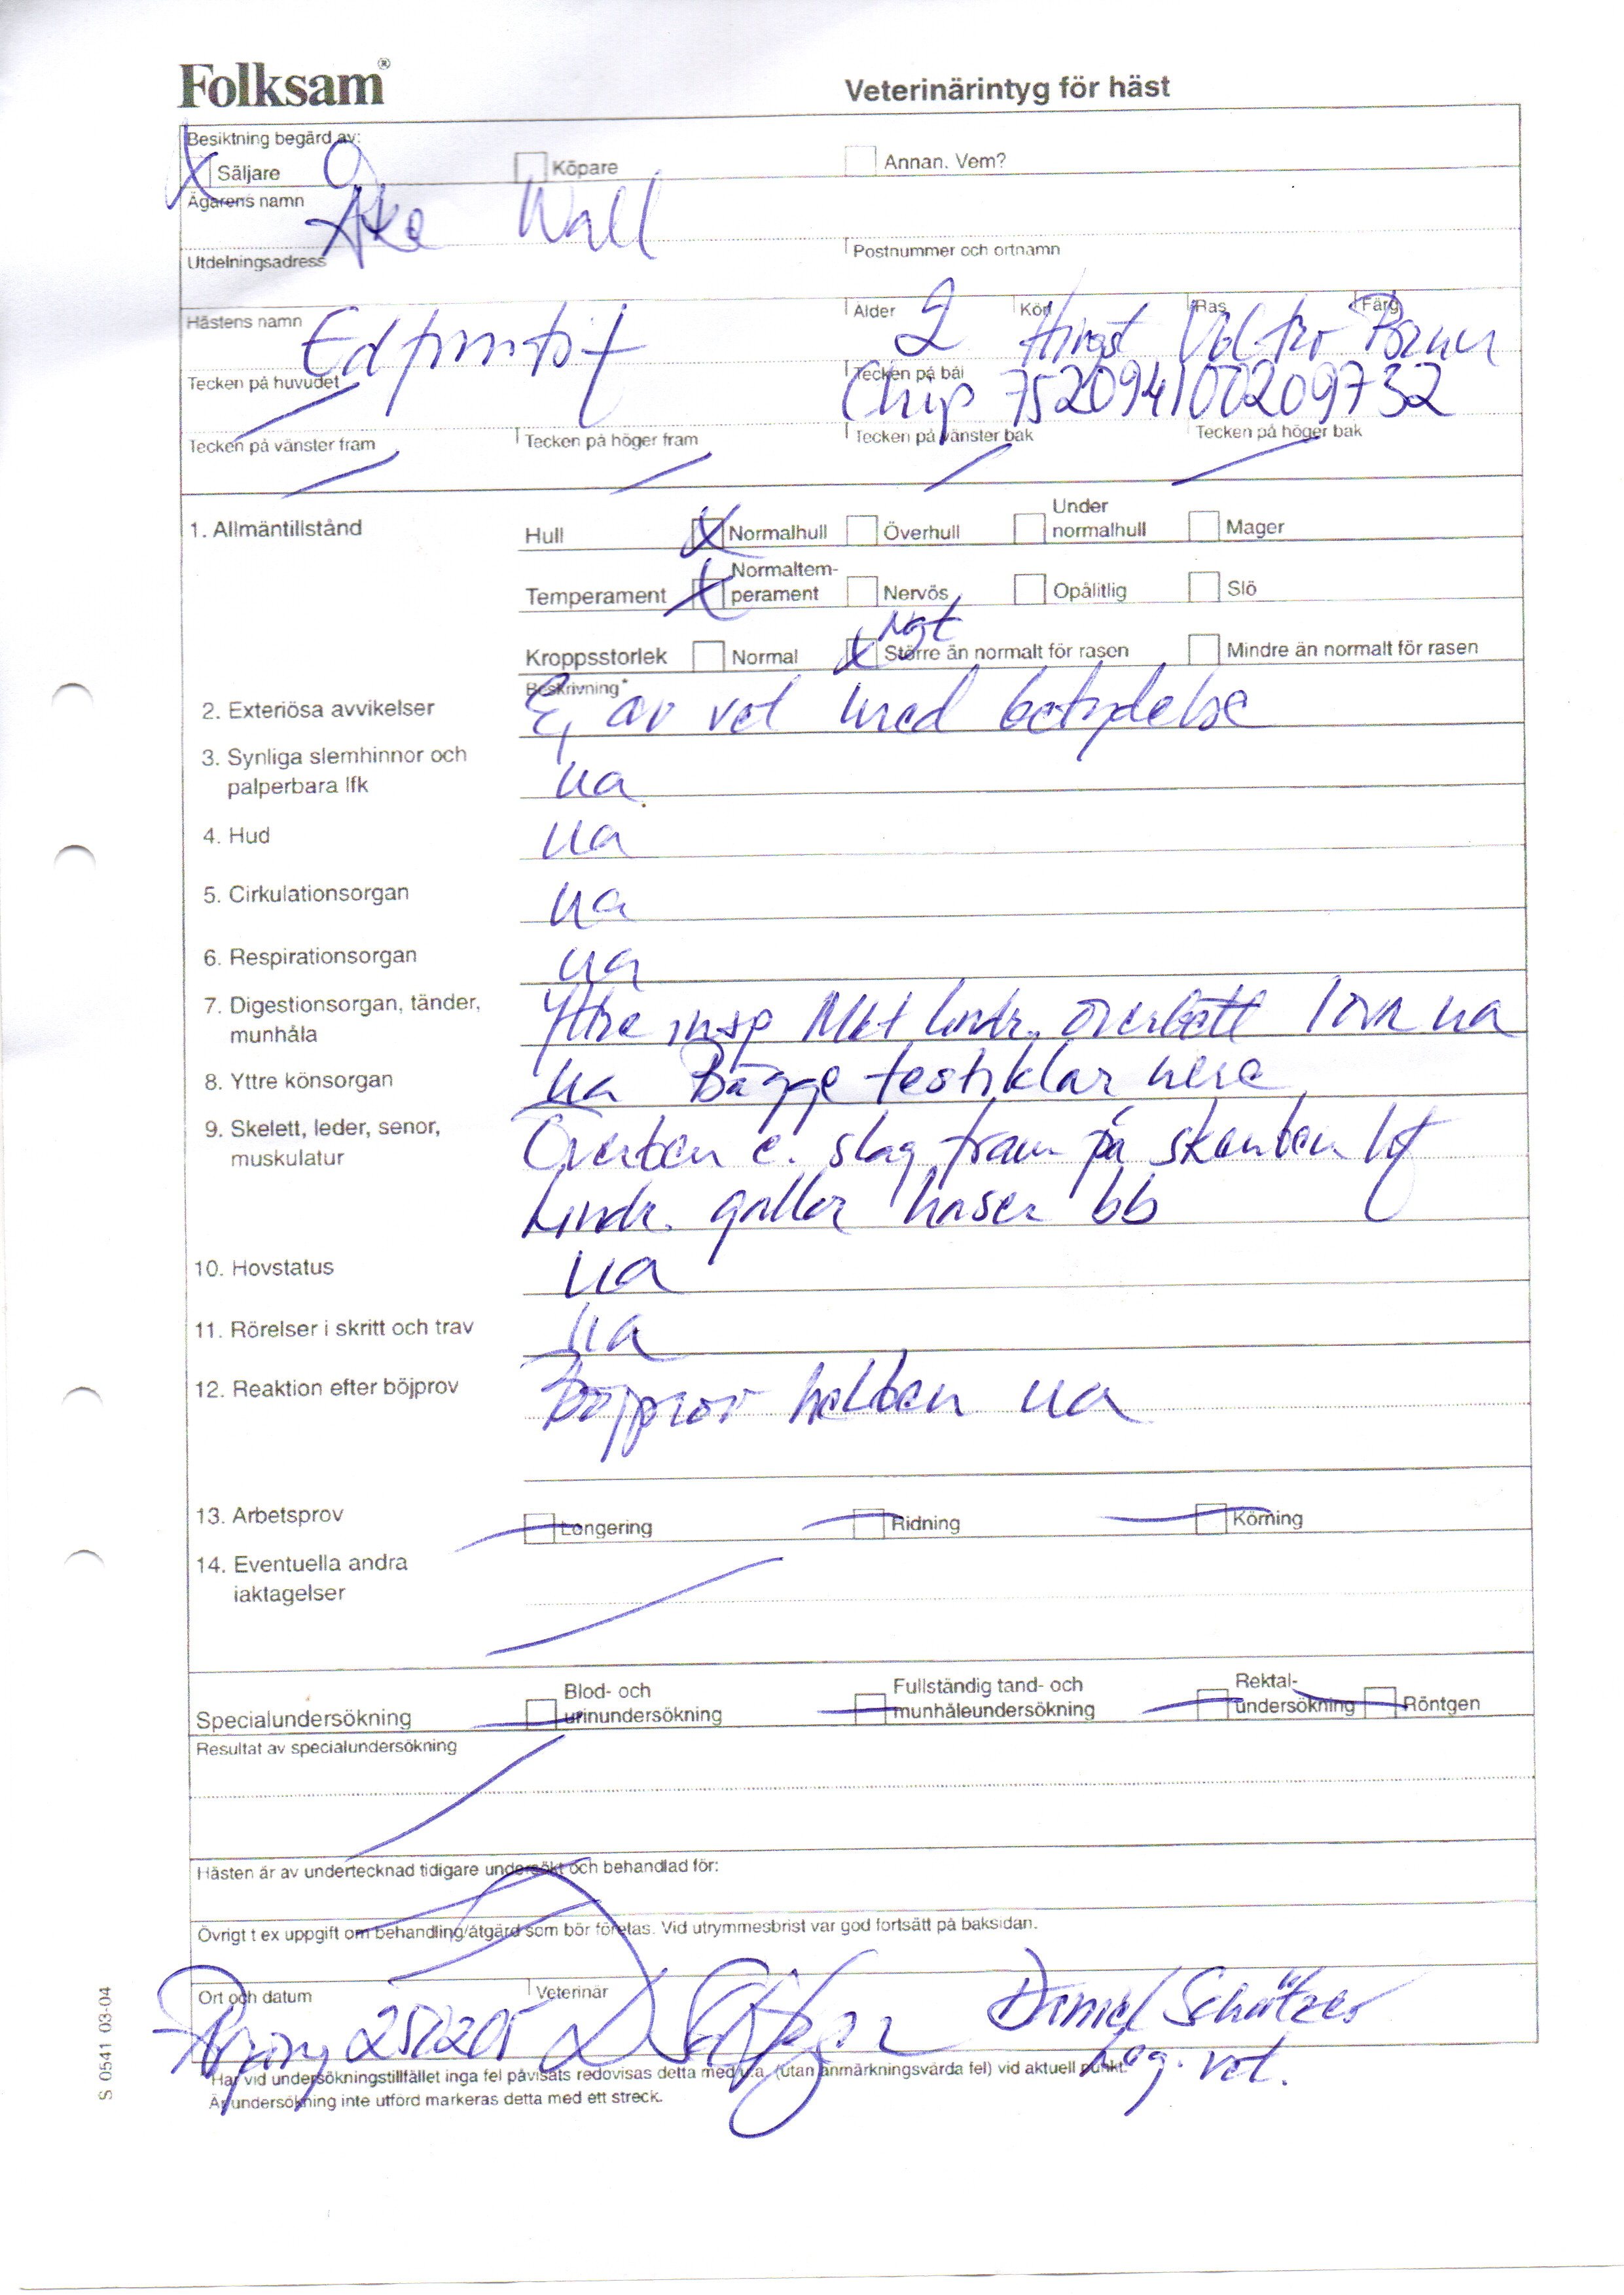 Folksam®
Veterinärintyg för häst
Besiktning begärd av:
X Säljare Köpare Annan. Vem?
Ägarens namn
Åke Wall
Utdelningsadress Postnummer och ortnamn
Hästens namn Ålder 2 Kön Hingst Ras Färg Brun
Tecken på huvudet Tecken på bål
Chip 752094100209732
Tecken på vänster fram Tecken på höger fram Tecken på vänster bak Tecken på höger bak
1. Allmäntillstånd Hull X Normalhull Överhull Under normalhull Mager
Temperament X Normaltem-perament Nervös Opålitlig Slö
Ngt
Kroppsstorlek Normal X Större än normalt för rasen Mindre än normalt för rasen
Beskrivning*
2. Exteriösa avvikelser Ej av vet med betydelse
3. Synliga slemhinnor och
palperbara lfk ua
4. Hud ua
5. Cirkulationsorgan ua
6. Respirationsorgan ua
7. Digestionsorgan, tänder,
munhåla Yttre insp Mkt lindr. överbett i övr ua
8. Yttre könsorgan ua Bägge testiklar nere
9. Skelett, leder, senor,
muskulatur Överben e. slag fram på skenben
Lindr. gallor haser bb
10. Hovstatus ua
11. Rörelser i skritt och trav ua
12. Reaktion efter böjprov Böjprov helben ua
13. Arbetsprov Longering Ridning Körning
14. Eventuella andra
iaktagelser
Specialundersökning Blod- och urinundersökning Fullständig tand- och munhåleundersökning Rektal-undersökning Röntgen
Resultat av specialundersökning
Hästen är av undertecknad tidigare undersökt och behandlad för:
Övrigt t ex uppgift om behandling/åtgärd som bör företas. Vid utrymmesbrist var god fortsätt på baksidan.
Ort och datum Veterinär
251205 Daniel Schützer
Leg. vet.
Har vid undersökningstillfället inga fel påvisats redovisas detta med u.a. (utan anmärkningsvärda fel) vid aktuell punkt.
Är undersökning inte utförd markeras detta med ett streck.
S 0541 03-04